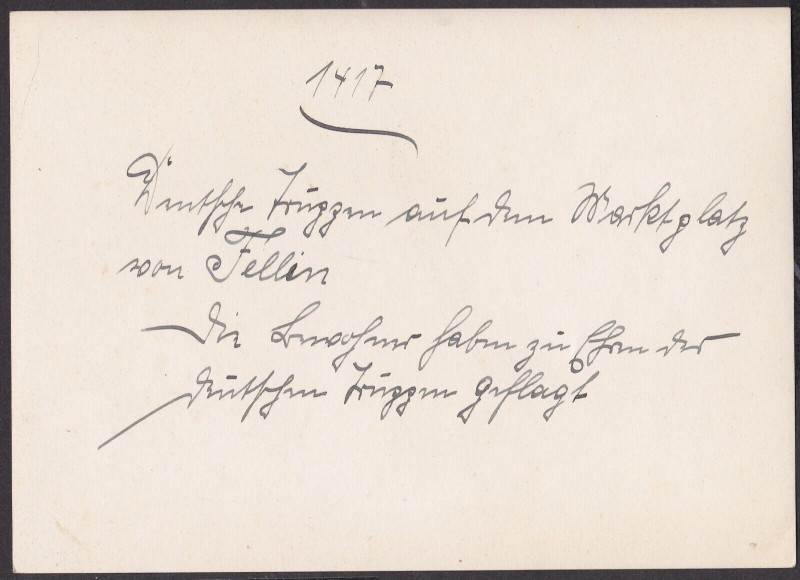 1417
Deutsche Truppen auf dem Marktplatz
von Fellin
Die Bewohner haben zu Ehren der
deutschen Truppen geflaggt